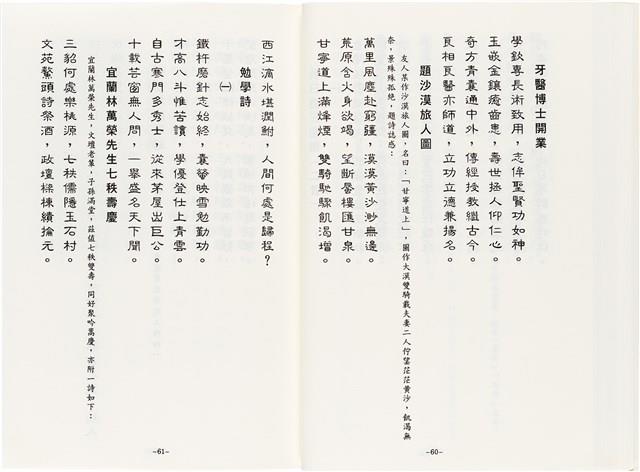 牙醫博士開業
學飲專長術致用，志侔聖賢功如神。
玉嵌金鑲癒齒患，壽世拯人仰仁心。
奇方青囊通中外，傳經授教繼古今。
良相良醫亦師道，立功立德兼揚名。
題沙漠旅人圖
友人某作沙漠旅人圖，名曰：「甘寧道上」，圖作大漠雙騎載夫妻二人佇望茫茫黃沙，飢渴無
奈，景殊殊孤絶，題詩誌感：
萬里風塵赴窮疆，漠漠黃沙渺無邊。
荒原含火身欲竭，望斷蜃樓匯甘泉。
甘寧道上滿烽煙，雙騎馳驟飢渴增。
-60-
西江滴水堪潤鮒，人間何處是歸程？
勉學詩
㈠
鐵杵磨針志始終，囊螢映雪勉勤功。
才高八斗惟苦讀，學優登仕上青雲。
自古寒門多秀士，從來茅屋出巨公。
十載芸窗無人問，一舉盛名天下聞。
宜蘭林萬榮先生七秩壽慶
宜蘭林萬榮先生，文壇老輩，子孫滿堂，茲值七秩雙壽，同好聚吟萬慶，亦附一詩如下：
三貂何處樂桃源，七秩儒隱玉石村。
文苑鰲頭詩祭酒，政壇樑棟績掄元。
-61-